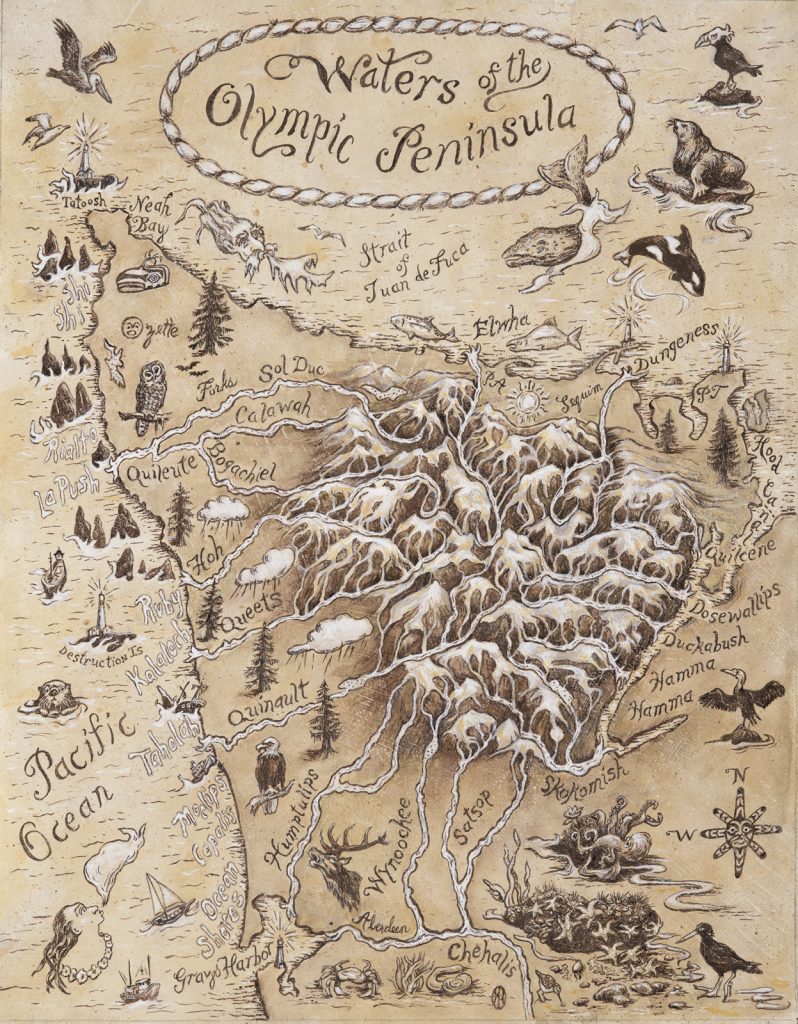 Waters of the
Olympic Peninsula
Tatoosh
Neah
Bay
Strait
of
Juan de Fuca
Shi
Shi
Ozette
Elwha
Dungeness
PA
Sequim
PT
Forks
Sol Duc
Calawah
Rialto
Quileute
Bogachiel
La Push
Hood
Canal
Hoh
Quilcene
Ruby
Queets
Dosewallips
Destruction Is
Kalaloch
Duckabush
Hamma
Hamma
Quinault
Taholah
Pacific
Ocean
Moclips
Copalis
Ocean
Shores
Humptulips
Wynoochee
Satsop
Skokomish
N
W
Aberdeen
Grays Harbor
Chehalis